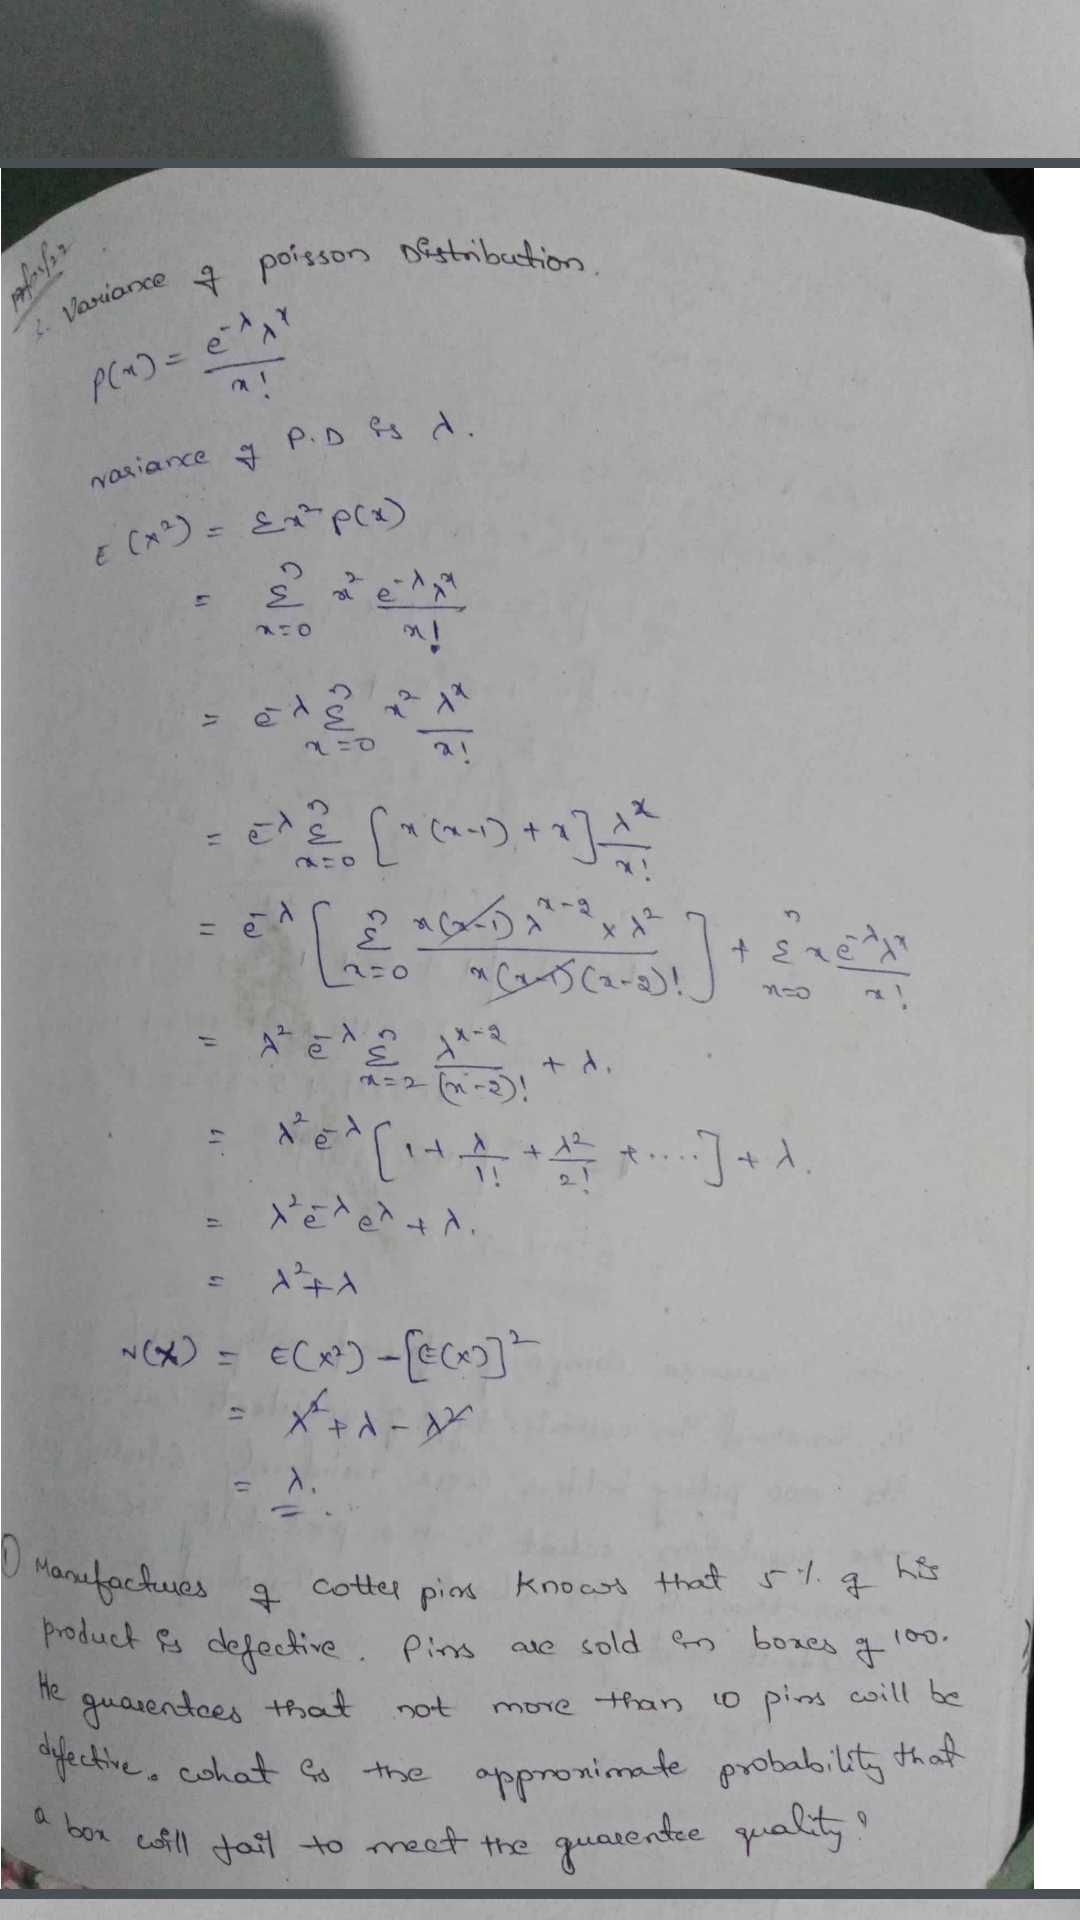 Variance of poisson Distribution.
p(x) = e^-λ λ^x / x!
variance of P.D is λ.
E(x²) = Σx² p(x)
= Σ^n_{x=0} x² e^-λ λ^x / x!
= e^-λ Σ^n_{x=0} x² λ^x / x!
= e^-λ Σ^n_{x=0} [x(x-1) + x] λ^x / x!
= e^-λ [Σ^n_{x=0} x(x-1) λ^{x-2} × λ² / x(x-1)(x-2)!] + Σ^n_{x=0} x e^-λ λ^x / x!
= λ² e^-λ Σ^n_{x=2} λ^{x-2} / (x-2)! + λ.
= λ² e^-λ [1 + λ/1! + λ²/2! + ....] + λ.
= λ² e^-λ e^λ + λ.
= λ² + λ
V(X) = E(X²) - [E(X)]²
= λ² + λ - λ²
= λ.
① Manufactures of cotter pins knows that 5% of his
product is defective. Pins are sold in boxes of 100.
He guarentees that not more than 10 pins will be
defective. what is the approximate probability that
a box will fail to meet the guarentee quality?